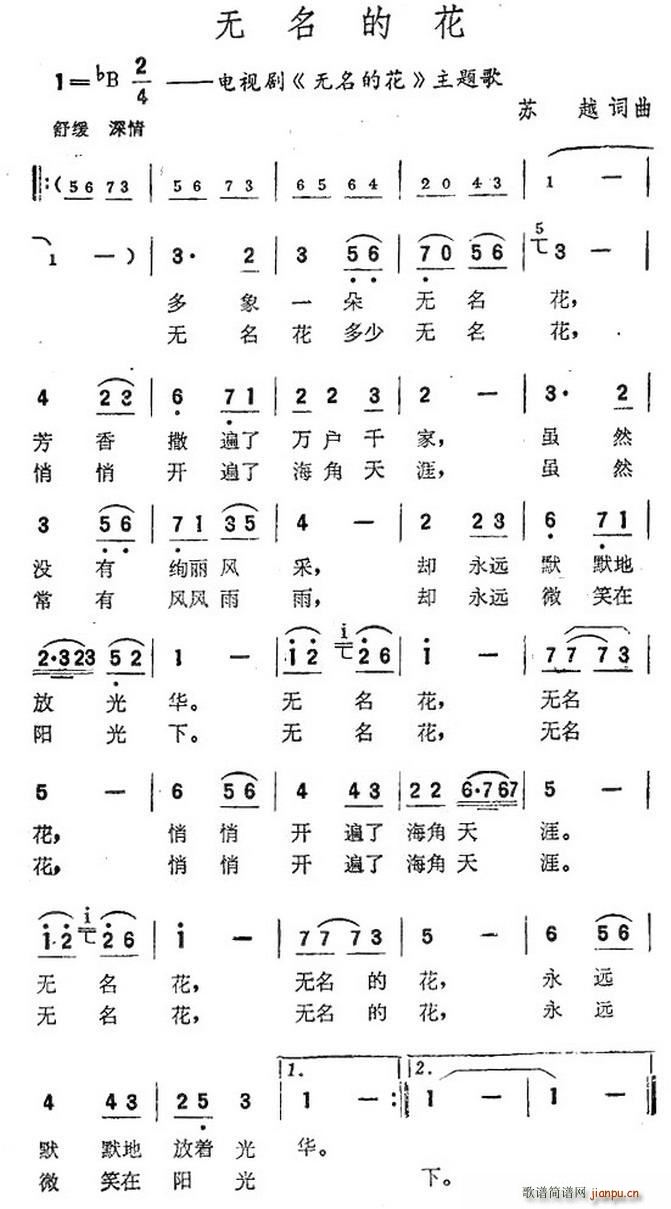 无名的花
1=♭B 2/4 ——电视剧《无名的花》主题歌
苏越词曲
舒缓 深情
‖:( 5 6 7 3 | 5 6 7 3 | 6 5 6 4 | 2 0 4 3 | 1 —
1 — ) | 3· 2 | 3 5 6 | 7 0 5 6 | 5 3 —
多象一朵无名花,
无名花多少无名花,
4 2 3 | 6 7 1 | 2 2 3 | 2 — | 3· 2
芳香撒遍了万户千家, 虽然
悄悄开遍了海角天涯, 虽然
3 5 6 | 7 1 3 5 | 4 — | 2 2 3 | 6 7 1
没有绚丽风采, 却永远默默地
常有风风雨雨, 却永远微笑在
2·3 2 3 5 2 | 1 — | 1 2 i 2 6 | i — | 7 7 7 3
放光华。 无名花, 无名
阳光下。 无名花, 无名
5 — | 6 5 6 | 4 4 3 | 2 2 6·7 6 7 | 5 —
花, 悄悄开遍了海角天涯。
花, 悄悄开遍了海角天涯。
1 2 i 2 6 | i — | 7 7 7 3 | 5 — | 6 5 6
无名花, 无名的花, 永远
无名花, 无名的花, 永远
4 4 3 | 2 5 3 | 1. 1 — :‖ 2. 1 — | 1 —
默默地放着光华。
微笑在阳光下。
歌谱简谱网 jianpu.cn